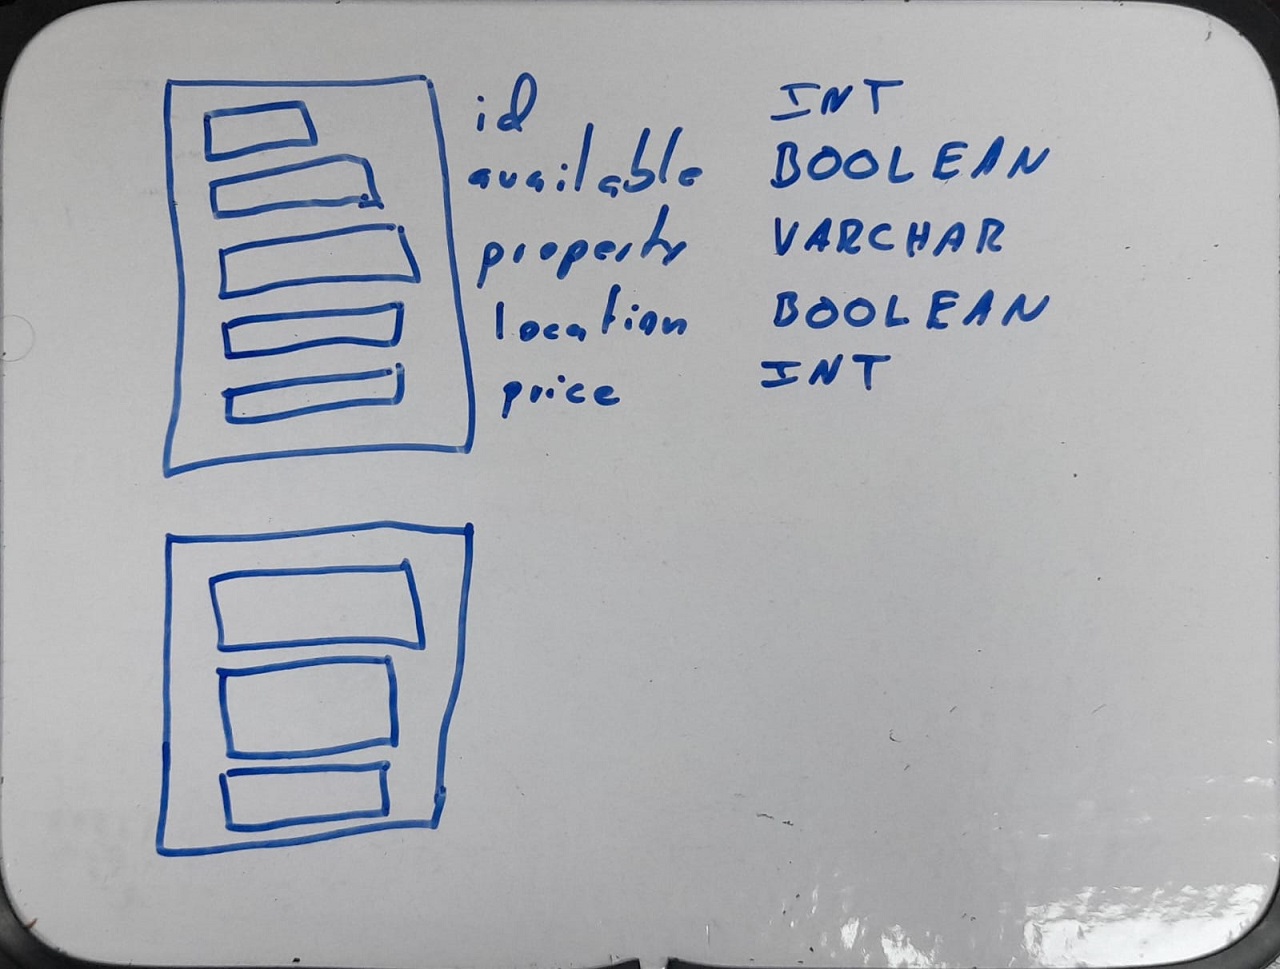 id INT
available BOOLEAN
property VARCHAR
location BOOLEAN
price INT